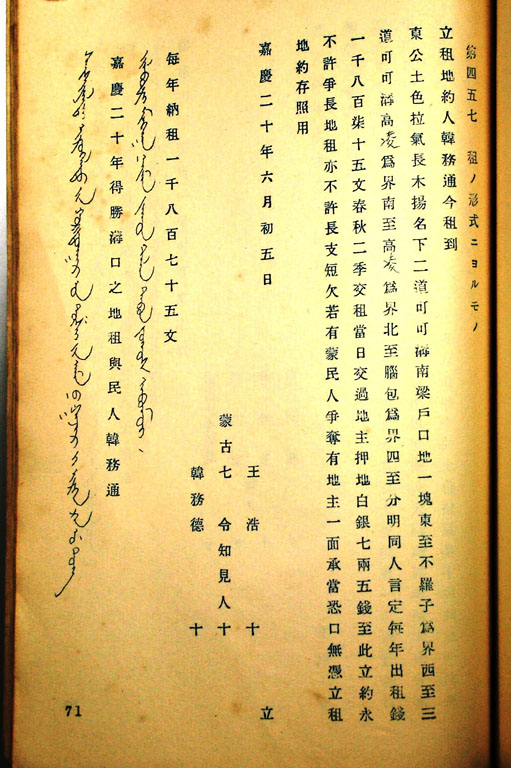 第四五七 租ノ形式ニヨルモノ
立租地約人韓務通今租到
東公土色拉氣長木揚名下二道可可溝南梁戶口地一塊東至不羅子爲界西至三
道可可溝高凌爲界南至高凌爲界北至腦包爲界四至分明同人言定每年出租錢
一千八百柒十五文春秋二季交租當日交過地主押地白銀七兩五錢至此立約永
不許爭長地租亦不許長支短欠若有蒙民人爭奪有地主一面承當恐口無憑立租
地約存照用
嘉慶二十年六月初五日
立
王浩十
蒙古七令知見人十
韓務德十
每年納租一千八百七十五文
嘉慶二十年得勝溝口之地租與民人韓務通
71